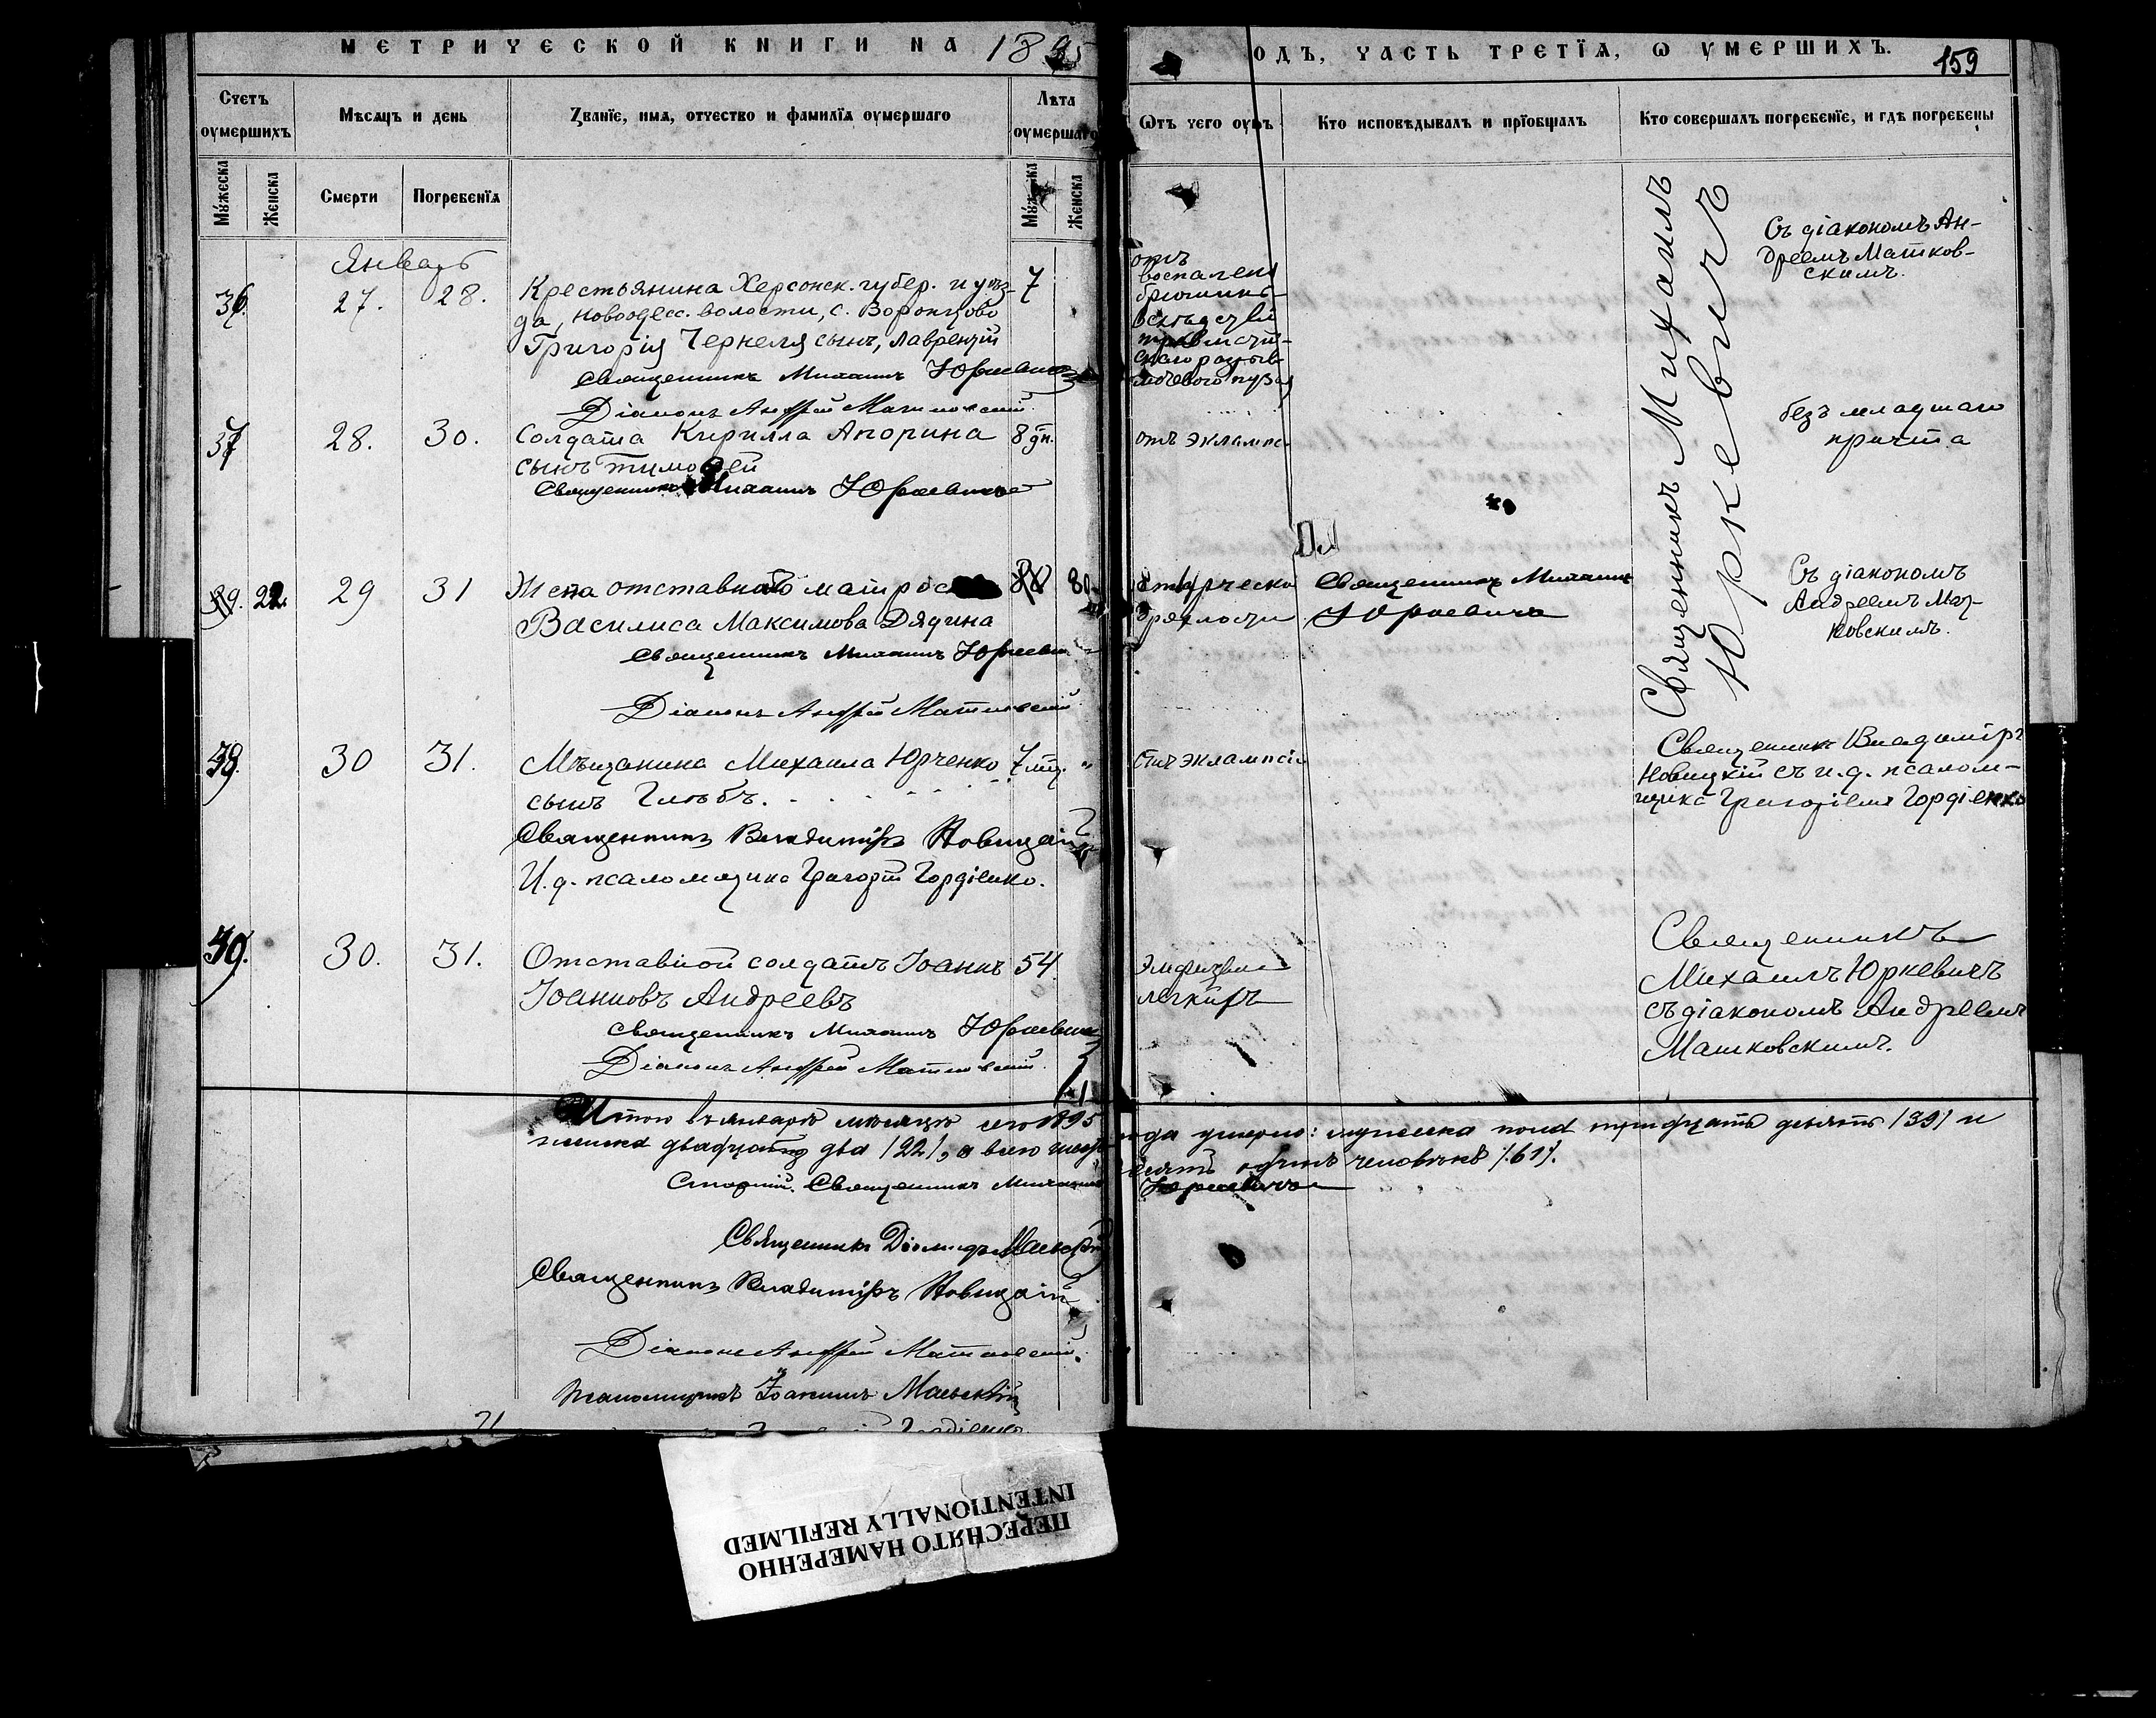 МЕТРИЧЕСКОЙ КНИГИ НА 1895
ОДЪ, ЧАСТЬ ТРЕТЇѦ, Ѡ УМЕРШИХЪ.
159
Счетъ оумершихъ
Мѣсѧцъ и день
Званїе, имѧ, отчество и фамилїѧ оумершаго
Лѣта оумершаго
Ѿтъ чего оумръ
Кто исповѣдывалъ и прїобщалъ
Кто совершалъ погребенїе, и гдѣ погребены
Мужеска
Женска
Смерти
Погребенїѧ
Мужеска
Женска
Январь
36.
27.
28.
Крестьянина Херсонск. губер. и уѣз-
да, Новоодесс. волости, с. Воронцово
Григорія Черкеля сынъ, Лаврентій
7
отъ
воспаленія
брюшины
вслѣдствіе
травматич-
скаго разрыв
мочевого пузыр
Священникъ Михаилъ Юркевичъ
Діаконъ Андрей Матковскій
Священникъ Михаилъ
Юркевичъ
Съ діакономъ Ан-
дреемъ Матков-
скимъ.
37
28.
30.
Солдата Кирилла Апорина
сынъ Тимофей
8 дн.
отъ эклампс
Священникъ Михаилъ Юркевичъ
безъ младшаго
причта
22.
29
31
Жена отставнаго матроса
Василиса Максимова Дядина
80
Старческой
дряхлости
Священникъ Михаилъ
Юркевичъ
Священникъ Михаилъ Юркевичъ
Діаконъ Андрей Матковскій
Съ діакономъ
Андреемъ Мат-
ковскимъ.
38.
30
31.
Мѣщанина Михаила Юрченко
сынъ Глѣбъ.
7 мц.
Отъ эклампсіи
Священникъ Владиміръ Новицкій
И. д. псаломщика Григорій Гордіенко.
Священникъ Владиміръ
Новицкій съ и. д. псалом-
щика Григоріемъ Гордіенко
39.
30.
31.
Отставной солдатъ Іоаннъ
Іоанновъ Андреевъ
54
Эмфизема
легкихъ
Священникъ Михаилъ Юркевичъ
Діаконъ Андрей Матковскій
Священникъ
Михаилъ Юркевичъ
съ діакономъ Андреемъ
Матковскимъ.
Итого въ январѣ мѣсяцѣ сего 1895 года умерло: мужеска пола тридцать девять /39/ и
женска двадцать два /22/, а всего шестьдесятъ одинъ человѣкъ /61/.
Старшій Священникъ Михаилъ Юркевичъ
Священникъ Діомидъ
Священникъ Владиміръ Новицкій
Діаконъ Андрей Матковскій
Псаломщикъ Іоакимъ
Гордіенко
ПЕРЕСНЯТО НАМЕРЕННО
INTENTIONALLY REFILMED